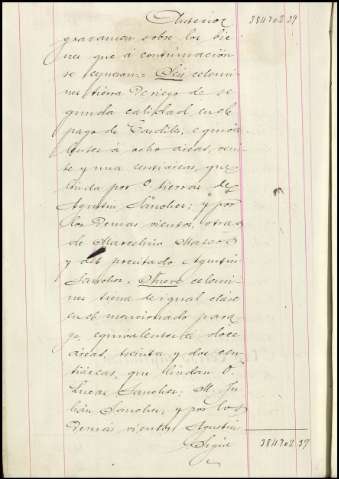 Anterior 384702.39
gravamen sobre los bie
nes que á continuación
se expresan. Seis celemi
nes tierra de riego de se
gunda calidad en el
pago de equiva
lentes á ocho áreas, vein
te y una centiáreas, que
linda por O. tierras de
Agustin Sanchez; y por
los demas vientos, otras
de Marcelino
y del precitado Agustin
Sanchez. Nueve celemi
nes tierra de igual clase
en el mencionado para
je, equivalentes á doce
áreas, treinta y dos cen
tiáreas, que lindan O.
Lucas Sanchez; M. Ju
lián Sanchez; y por los
demás vientos Agustin
Sigue 384702.39